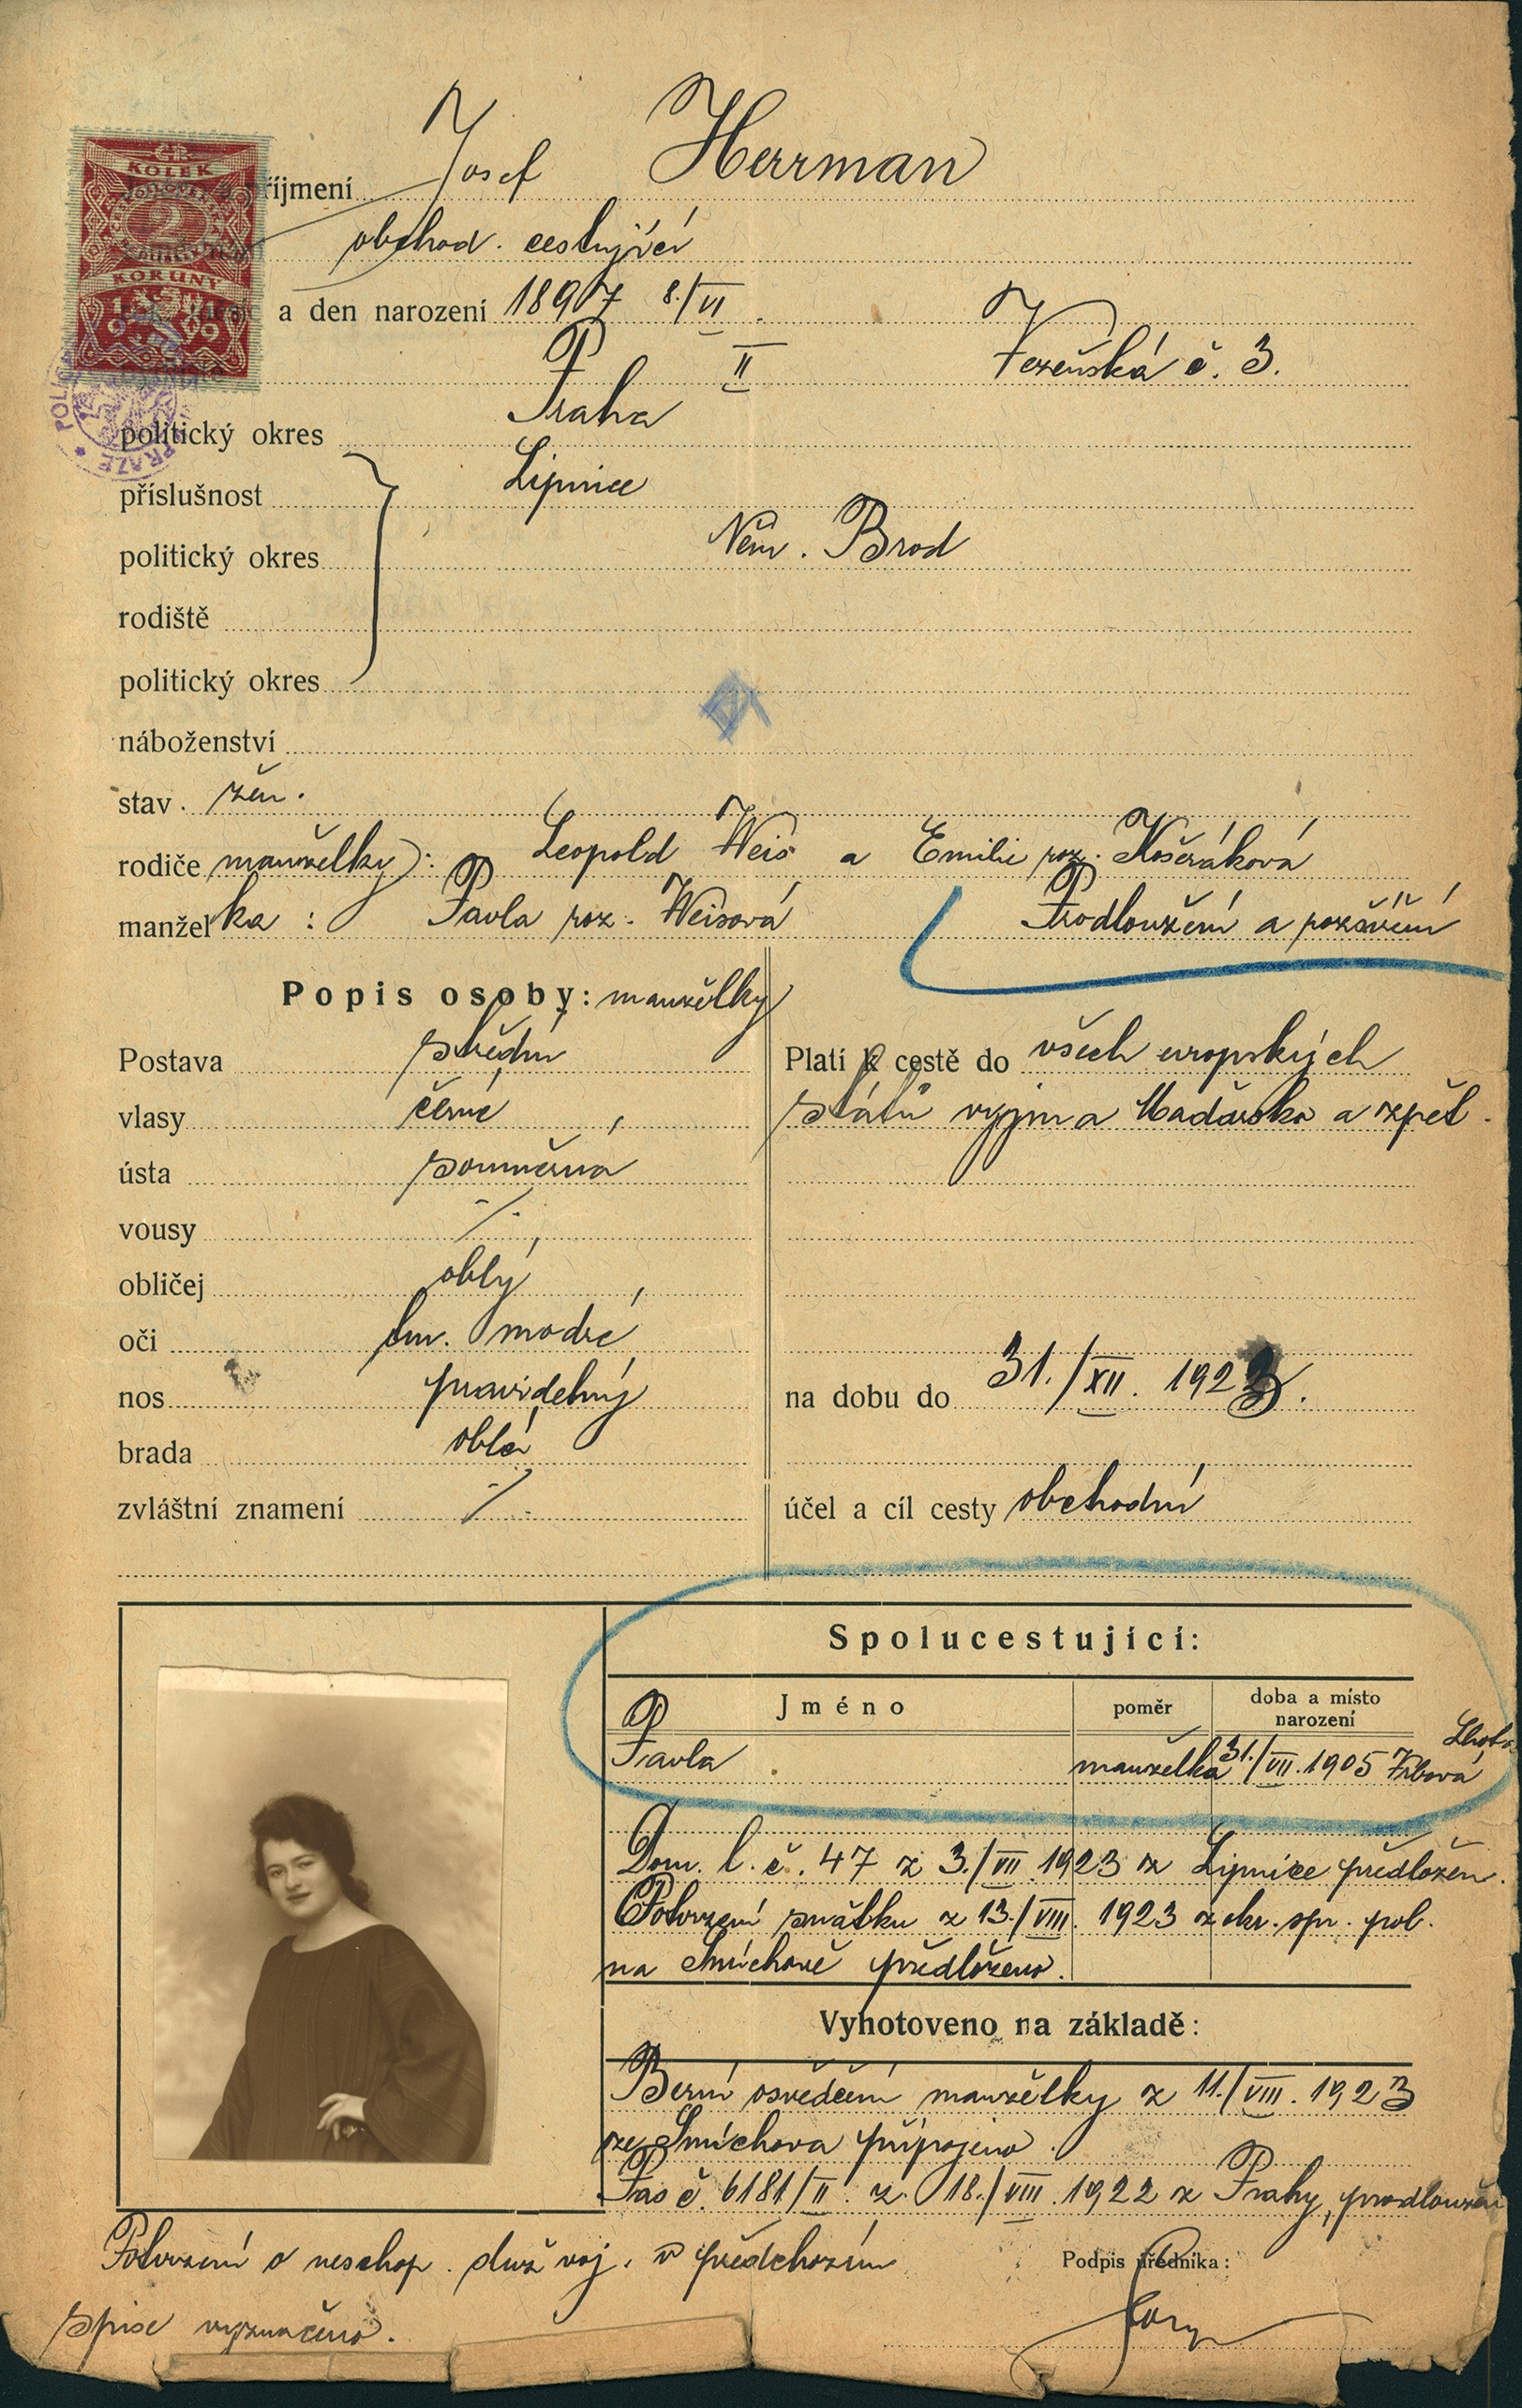 ČR
KOLEK
2
KORUNY
1919
POLIC
PRAZE
příjmení Josef Herrman
obchod. cestující
a den narození 1897 8./VI.
Praha II Vězeňská č. 3.
politický okres
příslušnost Lipnice
politický okres Něm. Brod
rodiště
politický okres
náboženství
stav žen.
rodiče manželky: Leopold Weis a Emilie roz. Košeráková
manželka : Pavla roz. Weisová
Prodloužení a rozšíření
Popis osoby: manželky
Postava střední
vlasy černé
ústa souměrná
vousy ⁒
obličej oblý
oči tm. modré
nos pravidelný
brada oblá
zvláštní znamení ⁒
Platí k cestě do všech evropských
států vyjma Maďarska a zpět.
na dobu do 31./XII. 1923.
účel a cíl cesty obchodní
Spolucestující:
Jméno poměr doba a místo narození
Pavla manželka 31./VII. 1905 Lhota Vrbová
Dom. l. č. 47 z 3./VII. 1923 z Lipnice předložen.
Potvrzení sňatku z 13./VIII. 1923 z okr. spr. pol.
na Smíchově předloženo.
Vyhotoveno na základě:
Berní osvědčení manželky z 11./VIII. 1923
ze Smíchova připojeno.
Pas č. 6181/II. z. 18./VIII. 1922 z Prahy, prodloužen
Potvrzení o neschop. služ voj. v předchozím
spise vyznačeno.
Podpis úředníka: